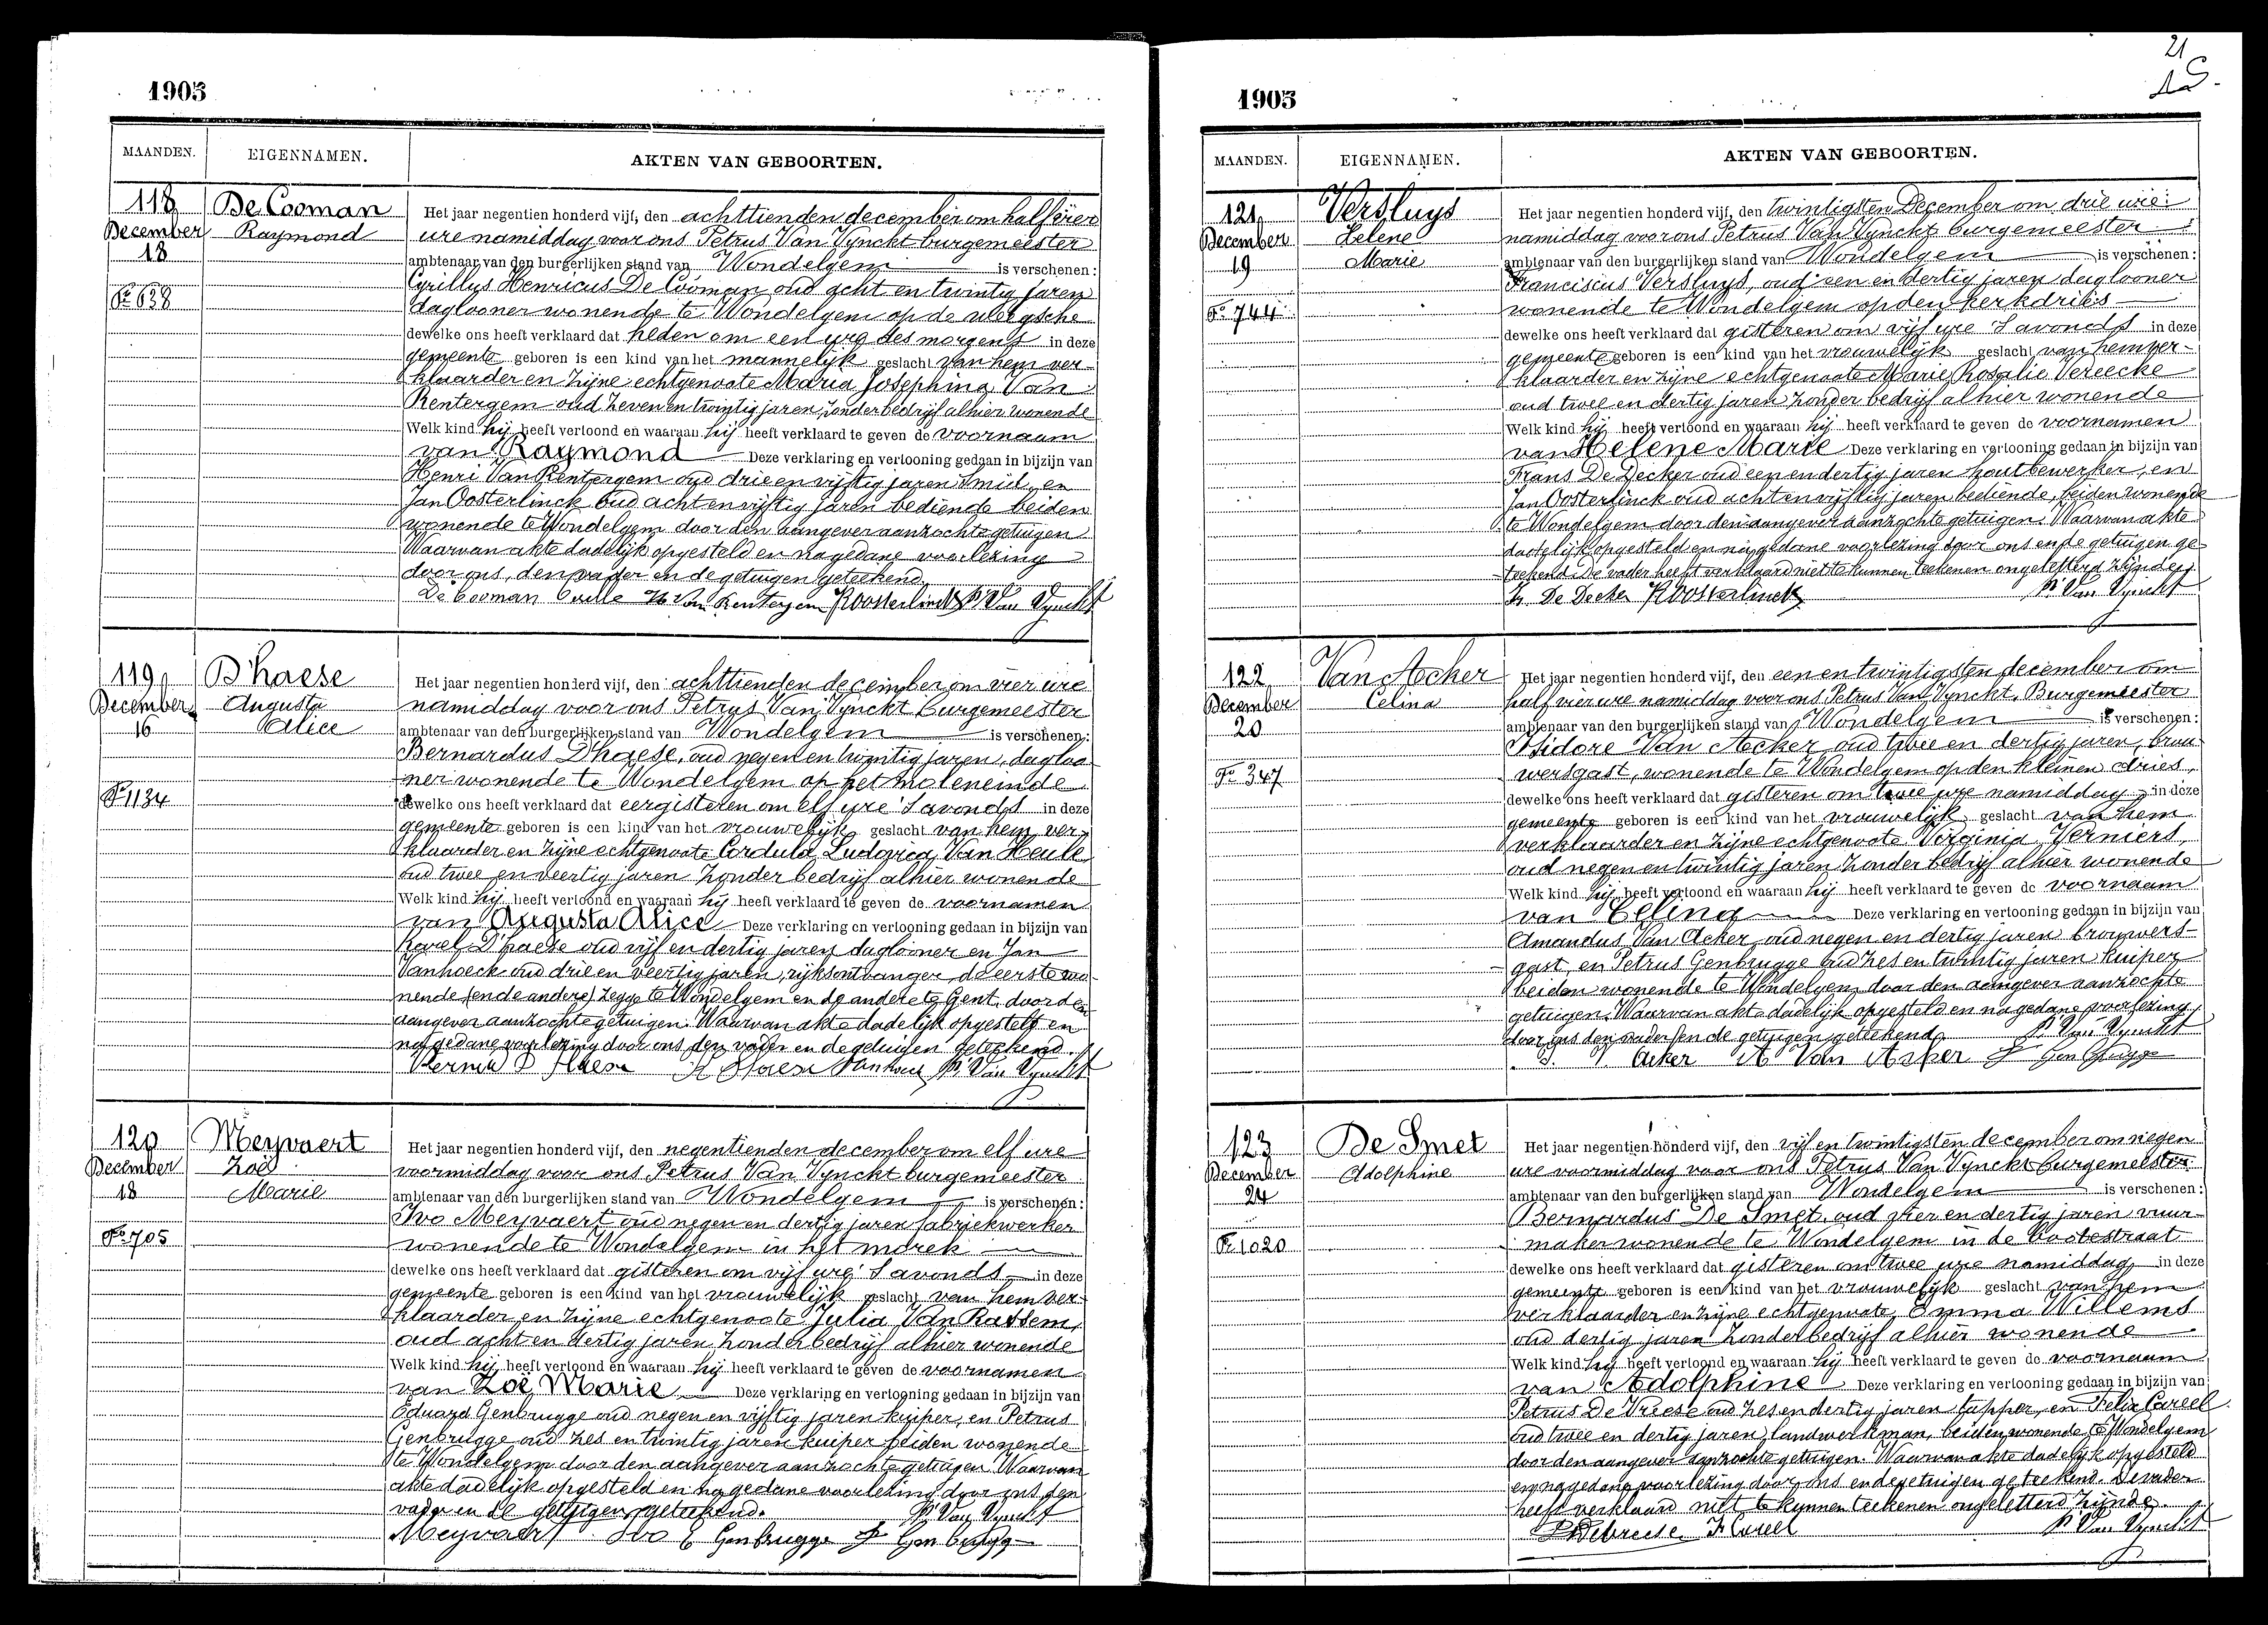 1905
MAANDEN. EIGENNAMEN. AKTEN VAN GEBOORTEN.
118 De Cooman
December Raymond
18
Fo 638
Het jaar negentien honderd vijf, den achttienden december om half vier
ure namiddag voor ons Petrus Van Vynckt burgemeester
ambtenaar van den burgerlijken stand van Wondelgem is verschenen:
Cyrillus Henricus De Cooman oud acht en twintig jaren
daglooner wonende te Wondelgem op de
dewelke ons heeft verklaard dat heden om een ure des morgens in deze
gemeente geboren is een kind van het mannelijk geslacht van hem ver-
klaarder en zijne echtgenoote Maria Josephina Van
Rentergem oud zeven en twintig jaren zonder bedrijf alhier wonende
Welk kind hij heeft vertoond en waaraan hij heeft verklaard te geven de voornaam
van Raymond Deze verklaring en vertooning gedaan in bijzijn van
Henri Van Rentergem oud drie en vijftig jaren smid en
Jan Oosterlinck oud acht en vijftig jaren bediende beiden
wonende te Wondelgem door den aangever aanzochte getuigen
Waarvan akte dadelijk opgesteld en na gedane voorlezing
door ons, den vader en de getuigen geteekend
De Cooman Cirille H Van Rentergem J Oosterlinck P. Van Vynckt
119 D'haese
December Augusta
16 Alice
Fo 1134
Het jaar negentien honderd vijf, den achttienden december om vier ure
namiddag voor ons Petrus Van Vynckt burgemeester
ambtenaar van den burgerlijken stand van Wondelgem is verschenen:
Bernardus D'haese, oud negen en twintig jaren, dagloo-
ner wonende te Wondelgem op het moleneinde
dewelke ons heeft verklaard dat eergisteren om elf ure 's avonds in deze
gemeente geboren is een kind van het vrouwelijk geslacht van hem ver-
klaarder en zijne echtgenoote Cordula Ludovica Van Heule
oud twee en veertig jaren zonder bedrijf alhier wonende
Welk kind hij heeft vertoond en waaraan hij heeft verklaard te geven de voornamen
van Augusta Alice Deze verklaring en vertooning gedaan in bijzijn van
Karel D'haese oud vijf en dertig jaren daglooner en Jan
Vanhoeck oud drie en veertig jaren, rijksontvanger, de eerste wo-
nende (en de andere) zegge te Wondelgem en de andere te Gent door den
aangever aanzochte getuigen. Waarvan akte dadelijk opgesteld en
na gedane voorlezing door ons den vader en de getuigen geteekend.
D Haese K Dhaese Vanhoeck P. Van Vynckt
120 Meyvaert
December Zoë
18 Marie
Fo 705
Het jaar negentien honderd vijf, den negentienden december om elf ure
voormiddag voor ons Petrus Van Vynckt burgemeester
ambtenaar van den burgerlijken stand van Wondelgem is verschenen:
Ivo Meyvaert oud negen en dertig jaren fabriekwerker
wonende te Wondelgem in het morek
dewelke ons heeft verklaard dat gisteren om vijf ure 's avonds in deze
gemeente geboren is een kind van het vrouwelijk geslacht van hem ver-
klaarder en zijne echtgenoote Julia Van Rassem,
oud acht en dertig jaren, zonder bedrijf alhier wonende
Welk kind hij heeft vertoond en waaraan hij heeft verklaard te geven de voornamen
van Zoë Marie Deze verklaring en vertooning gedaan in bijzijn van
Eduard Genbrugge oud negen en vijftig jaren kuiper, en Petrus
Genbrugge oud zes en twintig jaren kuiper beiden wonende
te Wondelgem door den aangever aanzochte getuigen. Waarvan
akte dadelijk opgesteld en na gedane voorlezing door ons den
vader en de getuigen geteekend. P. Van Vynckt
Meyvaert Ivo E Genbrugge P Genbrugge
21
1905
MAANDEN. EIGENNAMEN. AKTEN VAN GEBOORTEN.
121 Versluys
December Helene
19 Marie
Fo 744
Het jaar negentien honderd vijf, den twintigsten December om drie ure
namiddag voor ons Petrus Van Vynckt burgemeester
ambtenaar van den burgerlijken stand van Wondelgem is verschenen:
Franciscus Versluys, oud een en dertig jaren daglooner
wonende te Wondelgem op den kerkdries
dewelke ons heeft verklaard dat gisteren om vijf ure 's avonds in deze
gemeente geboren is een kind van het vrouwelijk geslacht van hem ver-
klaarder en zijne echtgenoote Marie Rosalie Vereecke
oud twee en dertig jaren zonder bedrijf alhier wonende
Welk kind hij heeft vertoond en waaraan hij heeft verklaard te geven de voornamen
van Helene Marie Deze verklaring en vertooning gedaan in bijzijn van
Frans De Decker oud een en dertig jaren houtbewerker, en
Jan Oosterlinck oud acht en vijftig jaren bediende, beiden wonende
te Wondelgem door den aangever aanzochte getuigen. Waarvan akte
dadelijk opgesteld en na gedane voorlezing door ons en de getuigen ge-
teekend. De vader heeft verklaard niet te kunnen teekenen ongeletterd zijnde.
Fr De Decker J Oosterlinck P. Van Vynckt
122 Van Acker
December Celina
20
Fo 347
Het jaar negentien honderd vijf, den een en twintigsten december om
half vier ure namiddag voor ons Petrus Van Vynckt, Burgemeester
ambtenaar van den burgerlijken stand van Wondelgem is verschenen:
Isidore Van Acker oud twee en dertig jaren, brou-
wersgast, wonende te Wondelgem op den kleinen dries,
dewelke ons heeft verklaard dat gisteren om twee ure namiddag in deze
gemeente geboren is een kind van het vrouwelijk geslacht van hem
verklaarder en zijne echtgenoote Virginia Verniers,
oud negen en twintig jaren zonder bedrijf alhier wonende
Welk kind hij heeft vertoond en waaraan hij heeft verklaard te geven de voornaam
van Celina Deze verklaring en vertooning gedaan in bijzijn van
Amandus Van Acker oud negen en dertig jaren brouwers-
gast, en Petrus Genbrugge oud zes en twintig jaren kuiper
beiden wonende te Wondelgem door den aangever aanzochte
getuigen. Waarvan akte dadelijk opgesteld en na gedane voorlezing
door ons den vader en de getuigen geteekend P. Van Vynckt
I. V. Acker A Van Acker P Genbrugge
123 De Smet
December Adolphine
24
Fo 1020
Het jaar negentien honderd vijf, den vijf en twintigsten december om negen
ure voormiddag voor ons Petrus Van Vynckt burgemeester
ambtenaar van den burgerlijken stand van Wondelgem is verschenen:
Bernardus De Smet, oud vier en dertig jaren vuur-
maker wonende te Wondelgem in de
dewelke ons heeft verklaard dat gisteren om twee ure namiddag in deze
gemeente geboren is een kind van het vrouwelijk geslacht van hem
verklaarder en zijne echtgenoote Emma Willems
oud dertig jaren zonder bedrijf alhier wonende
Welk kind hij heeft vertoond en waaraan hij heeft verklaard te geven de voornaam
van Adolphine Deze verklaring en vertooning gedaan in bijzijn van
Petrus De Vriese oud zes en dertig jaren tapper, en Felix Careel
oud twee en dertig jaren, landwerkman, beiden wonende te Wondelgem
door den aangever aanzochte getuigen. Waarvan akte dadelijk opgesteld
en na gedane voorlezing door ons en de getuigen geteekend. De vader
heeft verklaard niet te kunnen teekenen ongeletterd zijnde.
P Devriese F Careel P. Van Vynckt